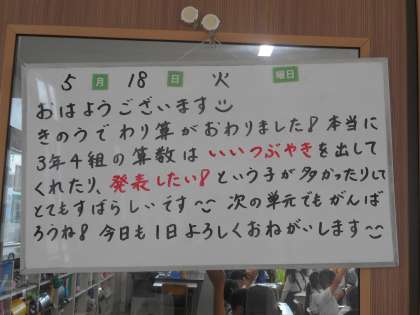 5月18日 火曜日
おはようございます
きのうでわり算がおわりました!本当に
3年4組の算数はいいつぶやきを出して
くれたり、発表したい!という子が多かったりして
とてもすばらしいです 次の単元でもがんば
ろうね!今日も1日よろしくおねがいします